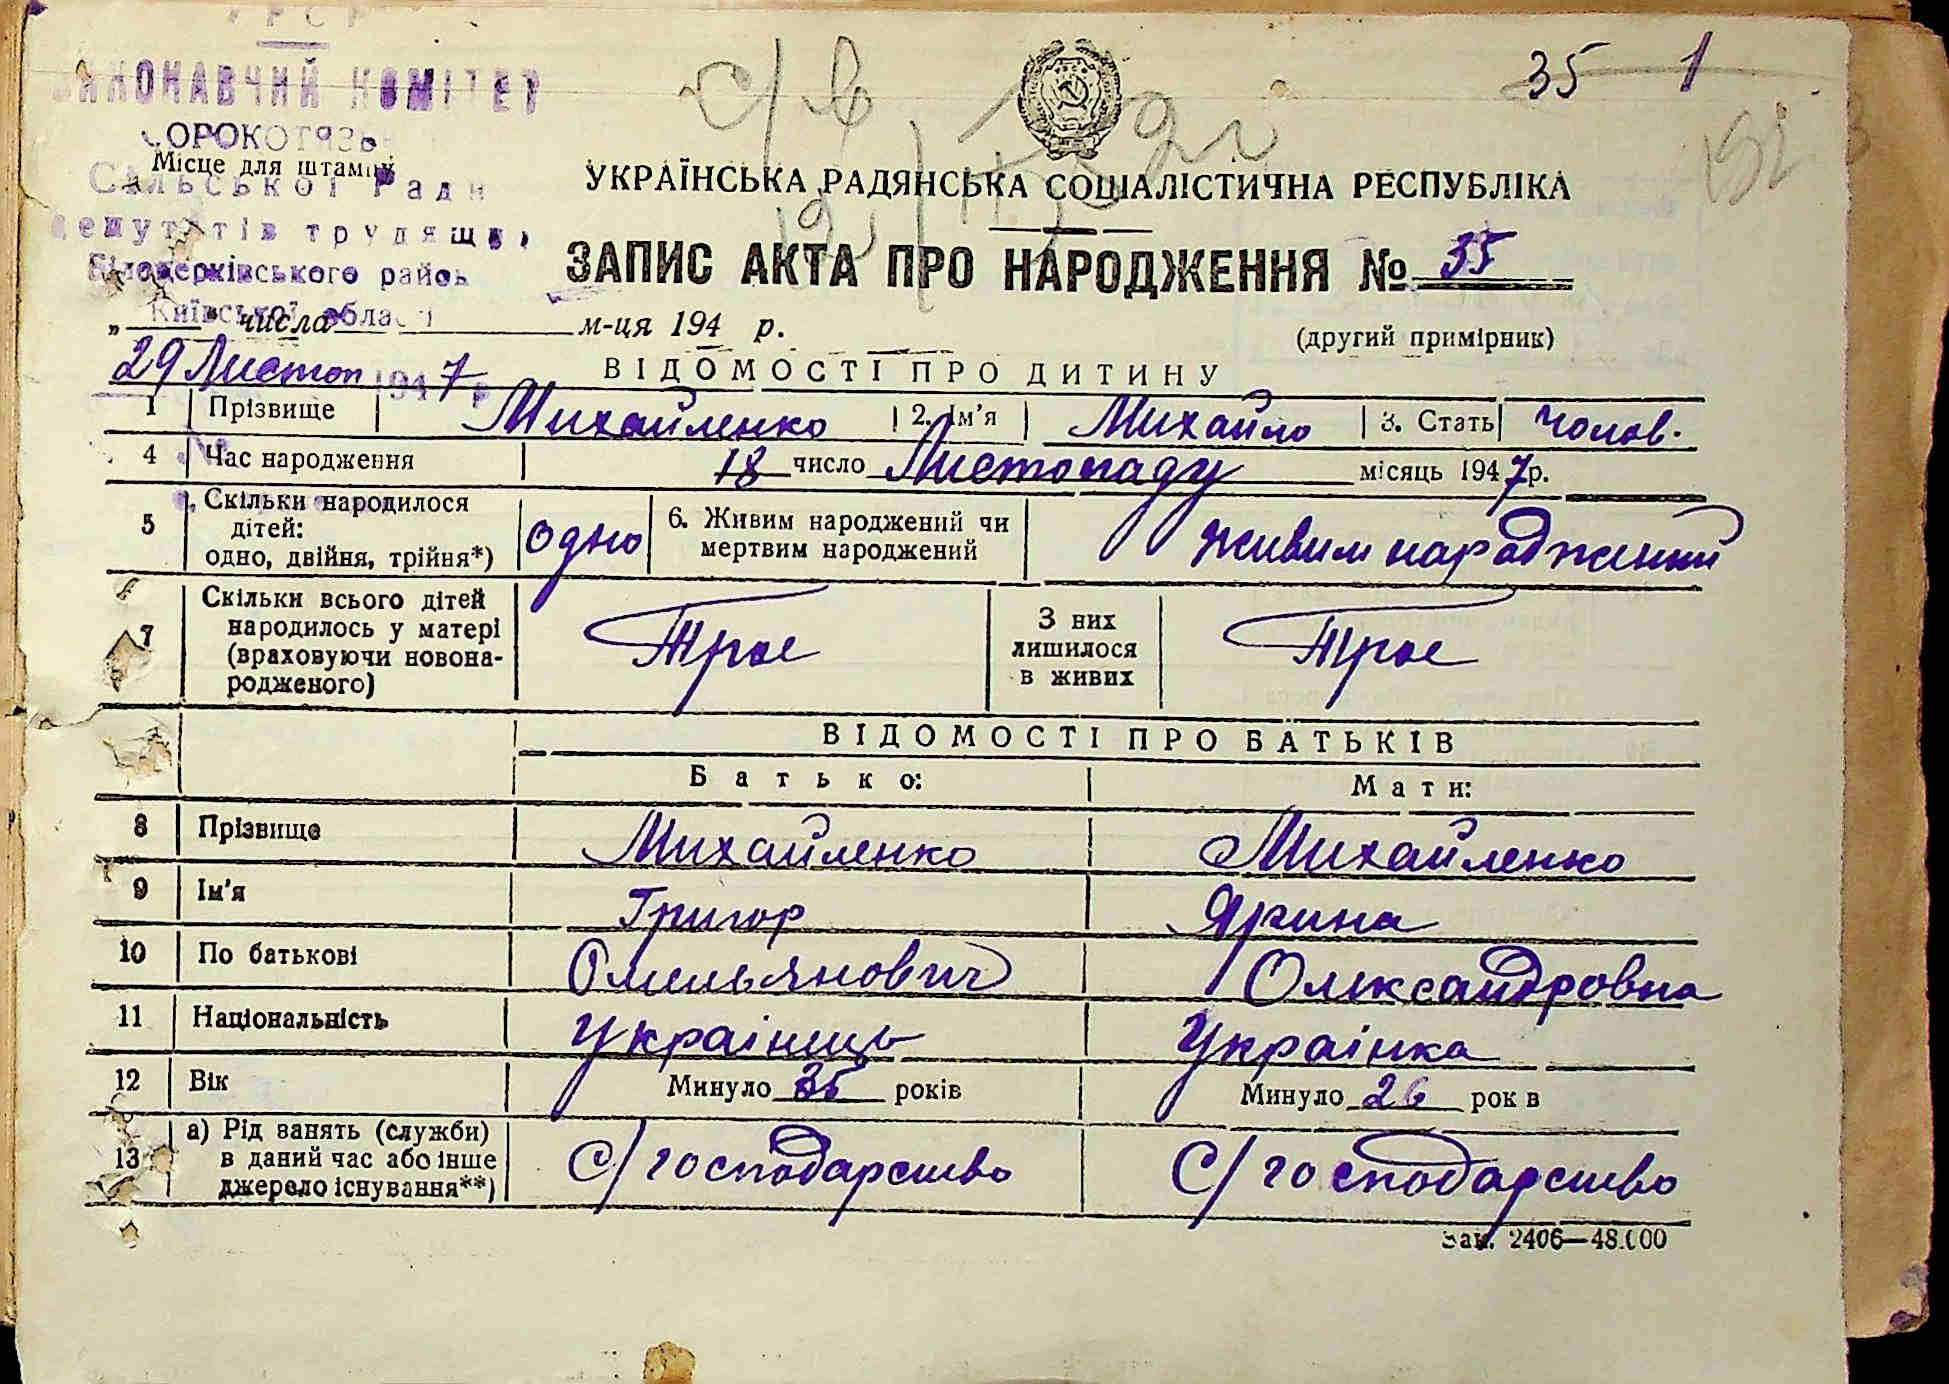 УРСР
ВИКОНАВЧИЙ КОМІТЕТ
35 1
Місце для штампу
Сільської Ради
депутатів трудящих
Білоцерківського району
Київської області
УКРАЇНСЬКА РАДЯНСЬКА СОЦІАЛІСТИЧНА РЕСПУБЛІКА
ЗАПИС АКТА ПРО НАРОДЖЕННЯ № 35
„ " числа м-ця 194 р.
(другий примірник)
29 Листоп 1947 р
ВІДОМОСТІ ПРО ДИТИНУ
1 Прізвище Михайленко 2. Ім'я Михайло 3. Стать чолов.
4 Час народження 18 число Листопаду місяць 1947 р.
5 Скільки народилося дітей: одно, двійня, трійня*) одно 6. Живим народжений чи мертвим народжений живим народжений
7 Скільки всього дітей народилось у матері (враховуючи новонародженого) Троє З них лишилося в живих Троє
ВІДОМОСТІ ПРО БАТЬКІВ
Батько: Мати:
8 Прізвище Михайленко Михайленко
9 Ім'я Григор Ярина
10 По батькові Омельянович Олександровна
11 Національність Українець Українка
12 Вік Минуло 35 років Минуло 26 рок в
13 а) Рід занять (служби) в даний час або інше джерело існування**) С/господарство С/господарство
Зам. 2406—48.000